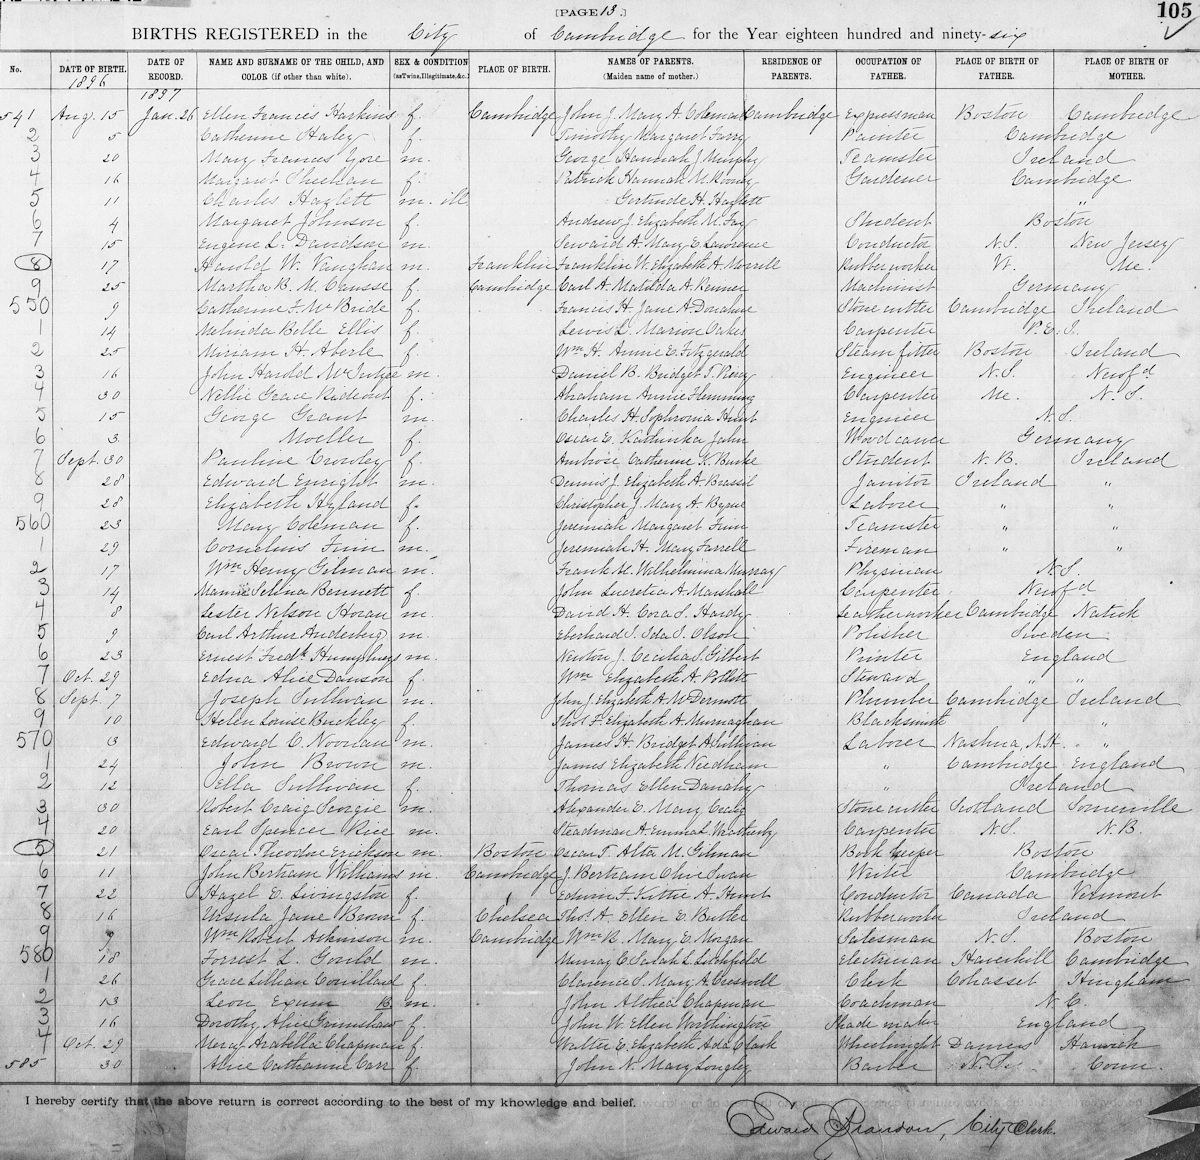 [PAGE 13.]
105
BIRTHS REGISTERED in the City of Cambridge for the Year eighteen hundred and ninety-six
No. DATE OF BIRTH. DATE OF RECORD. NAME AND SURNAME OF THE CHILD, AND COLOR (if other than white). SEX & CONDITION (as Twins, Illegitimate, &c.) PLACE OF BIRTH. NAMES OF PARENTS. (Maiden name of mother.) RESIDENCE OF PARENTS. OCCUPATION OF FATHER. PLACE OF BIRTH OF FATHER. PLACE OF BIRTH OF MOTHER.
1896 1897
541 Aug. 15 Jan. 26 Ellen Frances Harkins f. Cambridge John J. Mary A. Coleman Cambridge Expressman Boston Cambridge
2 5 Catherine Haley f. Timothy Margaret Painter Cambridge
3 20 Mary Frances Gore m. George Hannah J. Murphy Teamster Ireland
4 16 Margaret Sheehan f. Patrick Hannah M. Rooney Gardener Cambridge
5 11 Charles Hazlett m. ill Gertrude H. Hazlett "
6 4 Margaret Johnson f. Andrew J. Elizabeth M. Fay Student Boston
7 15 Eugene L. Davidson m. Seward A. Mary E. Lawrence Conductor N.S. New Jersey
8 17 Harold W. Vaughan m. Franklin Franklin W. Elizabeth A. Morrill Rubber worker Vt. Me.
9 25 Martha B. M. f. Cambridge Carl A. Matilda A. Renner Machinist Germany
550 9 Catherine F. McBride f. Francis H. Jane A. Donahue Stone cutter Cambridge Ireland
1 14 Melinda Belle Ellis f. Lewis D. Marion Oakes Carpenter P.E.I.
2 25 Miriam H. Aberle f. Wm H. Annie E. Fitzgerald Steam fitter Boston Ireland
3 16 John Harold McIntyre m. Daniel B. Bridget T. Engineer N.S. Newfd
4 30 Nellie Grace Rideout f. Abraham Annie Flemming Carpenter Me. N.S.
5 15 George Grant m. Charles H. Sophronia Hunt Engineer N.S.
6 3 Moeller f. Oscar E. Kathinka Jahn Wood carver Germany
7 Sept. 30 Pauline Crowley f. Ambrose Catherine K. Burke Student N.B. Ireland
8 28 Edward Enright m. Dennis J. Elizabeth A. Brassil Janitor Ireland "
9 28 Elizabeth Hyland f. Christopher J. Mary A. Byrne Laborer " "
560 23 Mary Coleman f. Jeremiah Margaret Finn Teamster " "
1 29 Cornelius Finn m. Jeremiah H. Mary Farrell Fireman " "
2 17 Wm Henry Gilman m. Frank M. Wilhelmina Murray Physician N.S.
3 14 Mamie Selina Bennett f. John Lucretia A. Marshall Carpenter Newfd
4 8 Lester Nelson Horan m. David H. Cora S. Hardy Leather worker Cambridge Natick
5 9 Carl Arthur Anderberg m. Eberhard S. Ida S. Olson Polisher Sweden
6 23 Ernest Fredk Humphreys m. Newton J. Cecilia S. Gilbert Printer England
7 Oct. 29 Edna Alice Dawson f. Wm Elizabeth A. Pollitt Steward " "
8 Sept. 7 Joseph Sullivan m. John J. Elizabeth A. McDermott Plumber Cambridge Ireland
9 10 Helen Louise Buckley f. Thos. F. Elizabeth A. Murnaghan Blacksmith "
570 3 Edward C. Noonan m. James H. Bridget A. Sullivan Laborer Nashua, N.H. "
1 24 John Brown m. James Elizabeth Needham " Cambridge England
2 12 Ella Sullivan f. Thomas Ellen Danahy " Ireland
3 30 Robert Craig Scorgie m. Alexander E. Mary Craig Stone cutter Scotland Somerville
4 20 Earl Spencer Rice m. Steadman A. Emma L. Weatherby Carpenter N.S. N.B.
5 21 Oscar Theodore Erickson m. Boston Oscar T. Alta M. Gilman Book keeper Boston
6 11 John Bertram Williams m. Cambridge J. Bertram Olive Swan Writer Cambridge
7 22 Hazel E. Livingston f. Edwin F. Kittie A. Hunt Conductor Canada Vermont
8 16 Ursula Jane Brown f. Chelsea Thos. A. Ellen E. Butler Rubber worker Ireland
9 9 Wm Robert Atkinson m. Cambridge Wm R. Mary E. Morgan Salesman N.S. Boston
580 18 Forrest L. Gould m. Murray C. Sarah L. Litchfield Haverhill Cambridge
1 26 Grace Lillian Couillard f. Clarence S. Mary A. Creswell Clerk Cohasset Hingham
2 13 Leon Exum B. m. John Alethea Chapman Coachman N.C.
3 16 Dorothy Alice Grimshaw f. John W. Ellen Worthington Shade maker England
4 Oct. 29 Mercy Arabella Chapman f. Walter E. Elizabeth Ada Clark Wheelwright Danvers Harwich
585 30 Alice Catharine Carr f. John N. Mary Longley Barber N.S. Conn.
I hereby certify that the above return is correct according to the best of my knowledge and belief.
Edward J. Brandon, City Clerk.